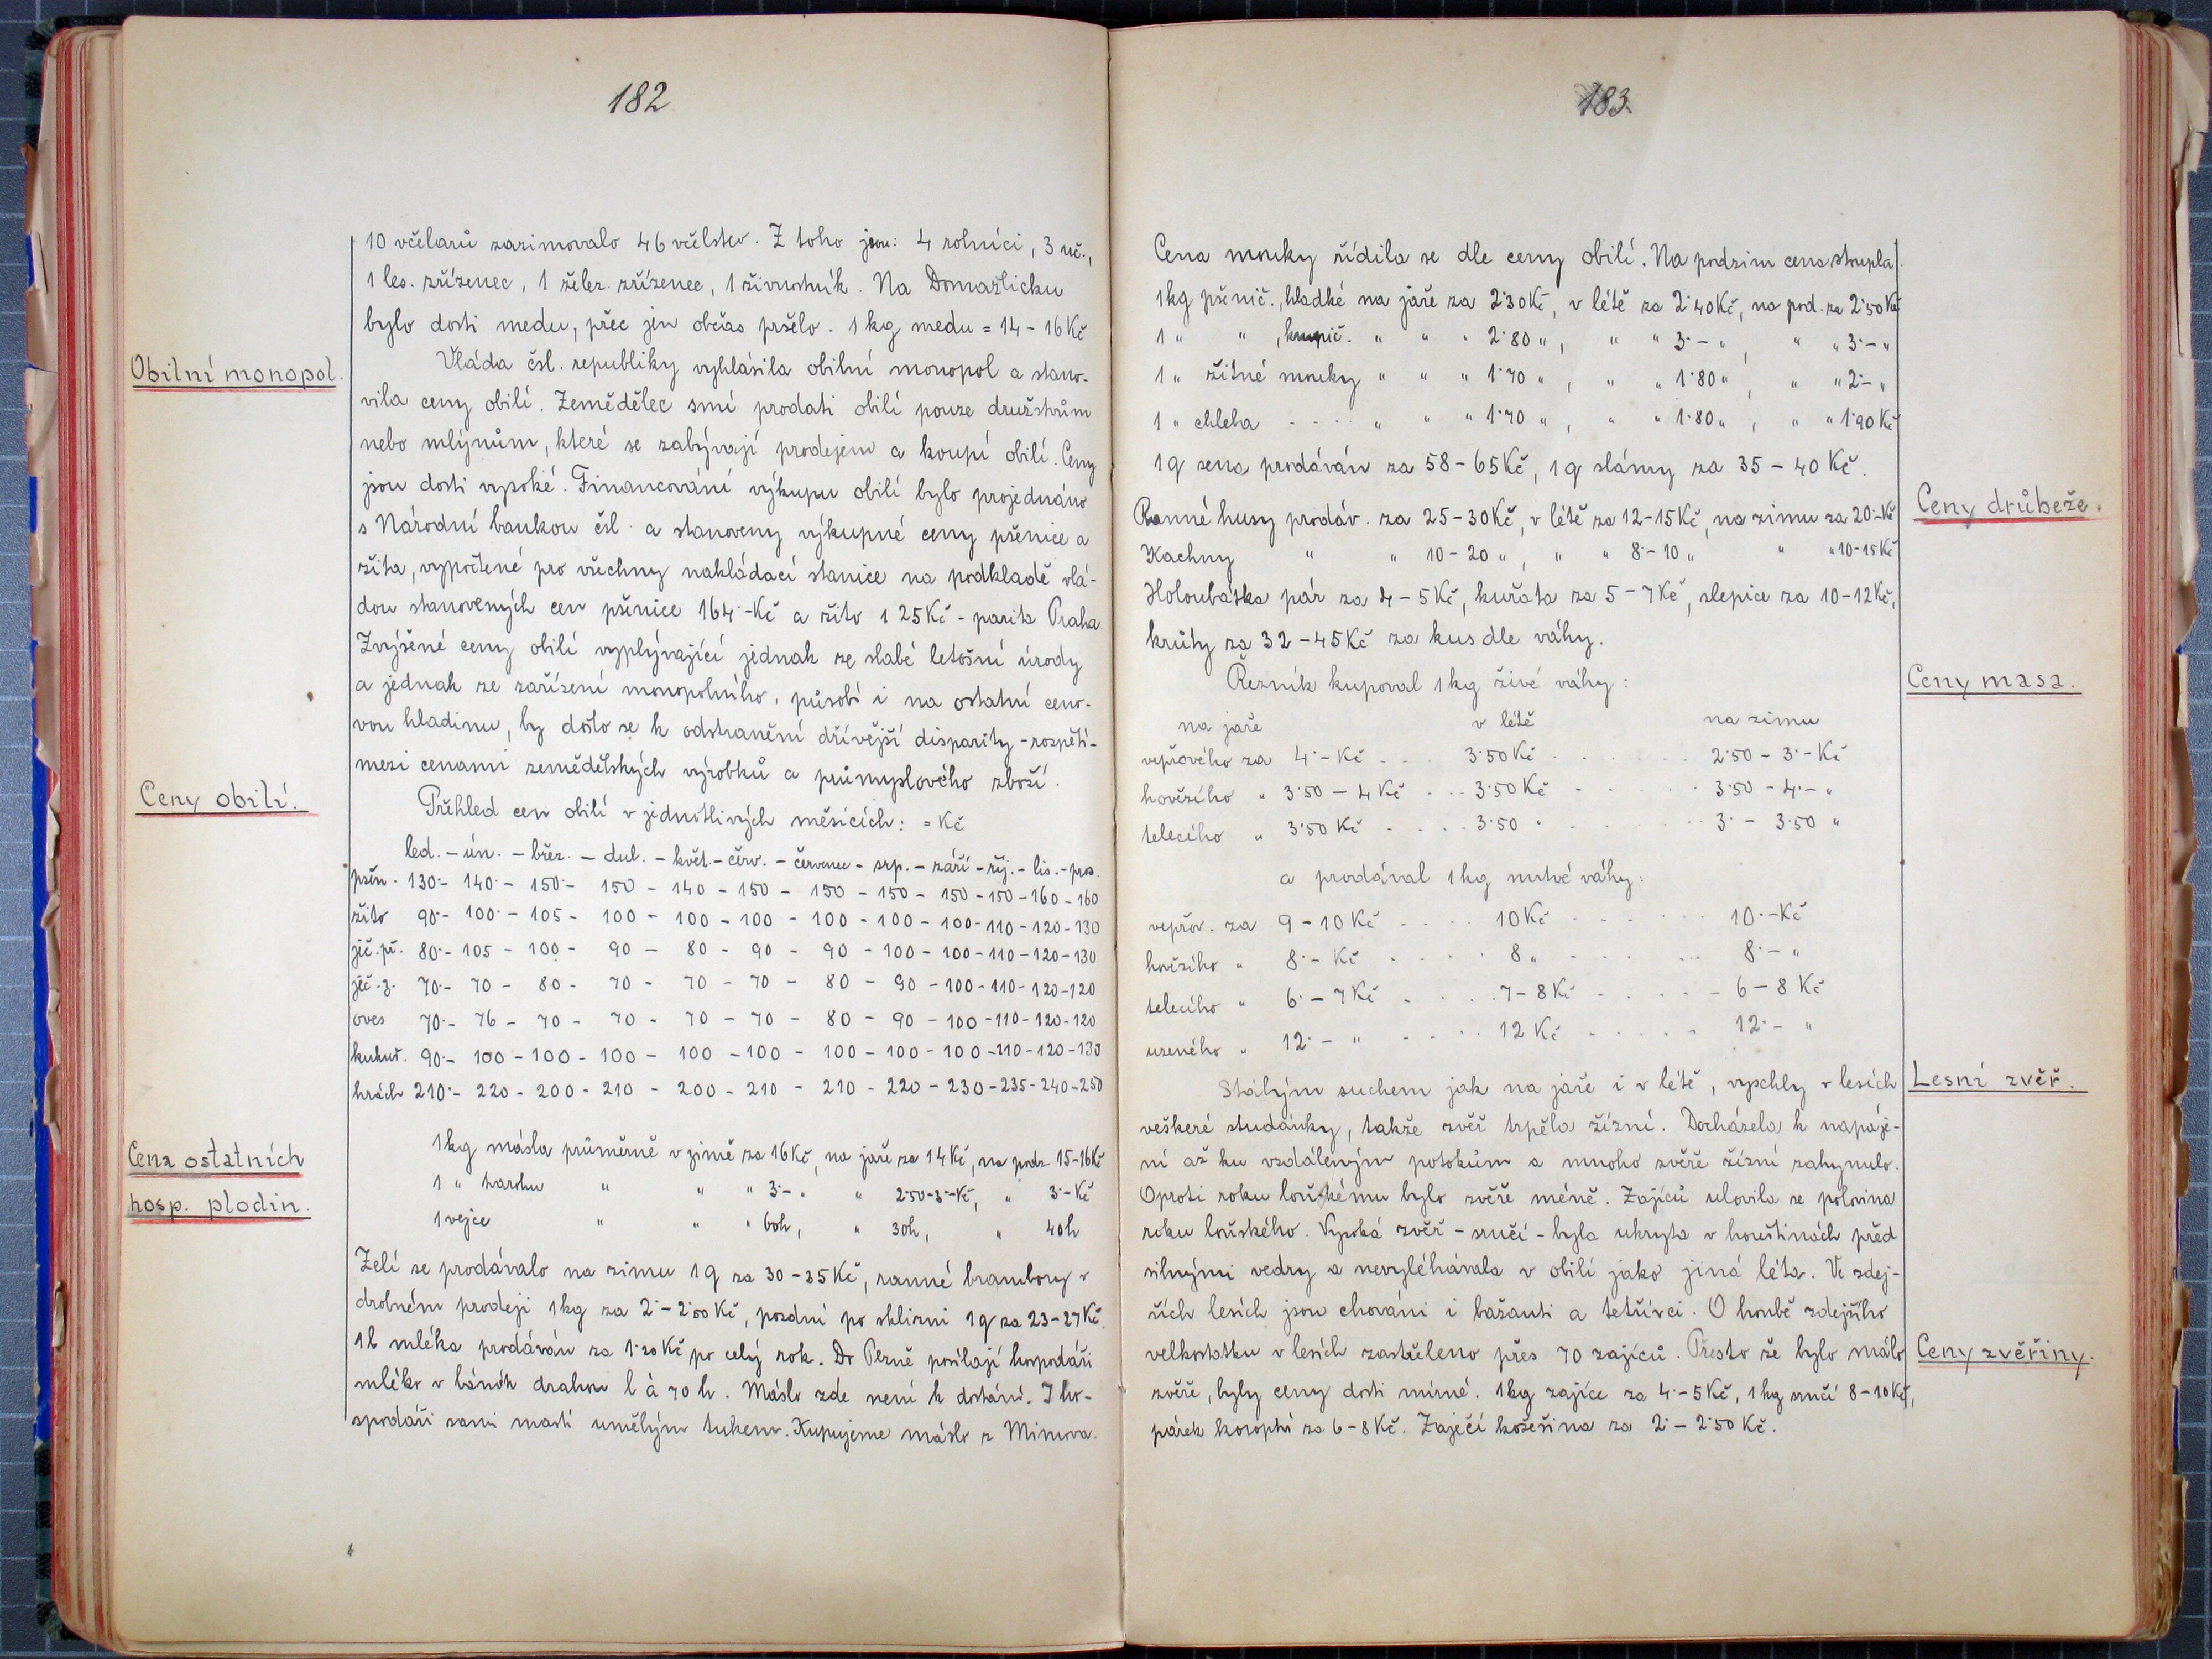 182
10 včelařů zazimovalo 46 včelstev. Z toho jsou: 4 rolníci, 3 uč.,
1 les. zřízenec, 1 želez. zřízenec, 1 živnostník. Na Domažlicku
bylo dosti medu, přec jen občas pršelo. 1 kg medu = 14 - 16 Kč
Obilní monopol.
Vláda čsl. republiky vyhlásila obilní monopol a stano-
vila ceny obilí. Zemědělec smí prodati obilí pouze družstvům
nebo mlýnům, které se zabývají prodejem a koupí obilí. Ceny
jsou dosti vysoké. Financování výkupu obilí bylo projednáno
s Národní bankou čsl. a stanoveny výkupné ceny pšenice a
žita, vypočtené pro všechny nakládací stanice na podkladě vlá-
dou stanovených cen pšenice 164·-Kč a žito 125 Kč - parita Praha.
Zvýšené ceny obilí vyplývající jednak ze slabé letošní úrody
a jednak ze zařízení monopolního, působí i na ostatní ceno-
vou hladinu, by došlo se k odstranění dřívější disparity - rozpětí -
mezi cenami zemědělských výrobků a průmyslového zboží.
Ceny obilí.
Přehled cen obilí v jednotlivých měsících: = Kč
led. - ún. - břez. - dub. - květ. - červ. - červenec - srp. - září - říj. - lis. - pros.
pšen. 130·- 140·- 150·- 150 - 140 - 150 - 150 - 150 - 150 - 150 - 160 - 160
žito 90·- 100·- 105 - 100 - 100 - 100 - 100 - 100 - 100 - 110 - 120 - 130
ječ. př. 80·- 105 - 100 - 90 - 80 - 90 - 90 - 100 - 100 - 110 - 120 - 130
ječ. z. 70·- 70 - 80 - 70 - 70 - 70 - 80 - 90 - 100 - 110 - 120 - 120
oves 70·- 76 - 70 - 70 - 70 - 70 - 80 - 90 - 100 - 110 - 120 - 120
kukuř. 90·- 100 - 100 - 100 - 100 - 100 - 100 - 100 - 100 - 110 - 120 - 130
hrách 210·- 220 - 200 - 210 - 200 - 210 - 210 - 220 - 230 - 235 - 240 - 250
Cena ostatních
hosp. plodin.
1 kg másla průměrně v zimě za 16 Kč, na jaře za 14 Kč, na podz. 15-16 Kč
1 " tvarohu " " " 3·- " " 2·50-3·-Kč, " 3·-Kč
1 vejce " " " 60h, " 30h, " 40h
Zelí se prodávalo na zimu 1 q za 30-25 Kč, ranné brambory v
drobném prodeji 1 kg za 2·-2·50 Kč, pozdní po sklizni 1 q za 23-27 Kč.
1 l mléka prodáván za 1·20 Kč po celý rok. Do Plzně posílají hospodáři
mléko v bánóh drahou l à 70 h. Máslo zde není k dostání. I ho-
spodáři sami mastí umělým tukem. Kupujeme máslo z Mimova.
183.
Cena mouky řídila se dle ceny obilí. Na podzim cena stoupla.
1 kg pšenič., hladké na jaře za 2·30 Kč, v létě za 2·40 Kč, na pod. za 2·50 Kč
1 " " , krupič. " " " 2·80 ", " " 3·- ", " " 3·- "
1 " žitné mouky " " " 1·70 ", " " 1·80 ", " " 2·- "
1 " chleba . . . . " " " 1·70 ", " " 1·80 ", " " 1·90 Kč
1 q sena prodáván za 58-65 Kč, 1 q slámy za 35 - 40 Kč.
Ceny drůbeže.
Ranné husy prodáv. za 25-30 Kč, v létě za 12-15 Kč, na zimu za 20·-Kč
Kachny " " 10-20 ", " " 8·-10 " " " 10-15 Kč
Holoubátka pár za 4-5 Kč, kuřata za 5-7 Kč, slepice za 10-12 Kč,
krůty za 32-45 Kč za kus dle váhy.
Ceny masa.
Řezník kupoval 1 kg živé váhy:
na jaře v létě na zimu
vepřového za 4·-Kč . . . 3·50 Kč . . . . . . 2·50 - 3·-Kč
hovězího " 3·50 - 4 Kč . . . 3·50 Kč . . . . . 3·50 - 4·- "
telecího " 3·50 Kč . . . . 3·50 " . . . . . 3·- 3·50 "
a prodával 1 kg mrtvé váhy:
vepřov. za 9-10 Kč . . . . 10 Kč . . . . . . 10·-Kč
hovězího " 8·- Kč . . . . 8 " . . . . . . 8·- "
telecího " 6·-7 Kč . . . . 7-8 Kč . . . . . 6-8 Kč
uzeného " 12·- " . . . . 12 Kč . . . . . 12·- "
Lesní zvěř.
Stálým suchem jak na jaře i v létě, vyschly v lesích
veškeré studánky, takže zvěř trpěla žízní. Docházela k napáje-
ní až ku vzdáleným potokům a mnoho zvěře žízní zahynulo.
Oproti roku loňskému bylo zvěře méně. Zajíců ulovila se polovina
roku loňského. Vysoká zvěř - srnčí - byla ukryta v houštinách před
silnými vedry a nevyléhávala v obilí jako jiná léta. Ve zdej-
ších lesích jsou chováni i bažanti a tetřívci. O honbě zdejšího
velkostatku v lesích zastřeleno přes 70 zajíců. Přesto že bylo málo
Ceny zvěřiny.
zvěře, byly ceny dosti mírné. 1 kg zajíce za 4·-5 Kč, 1 kg srnčí 8-10 Kč,
párek koroptví za 6-8 Kč. Zaječí kožešina za 2·-2·50 Kč.